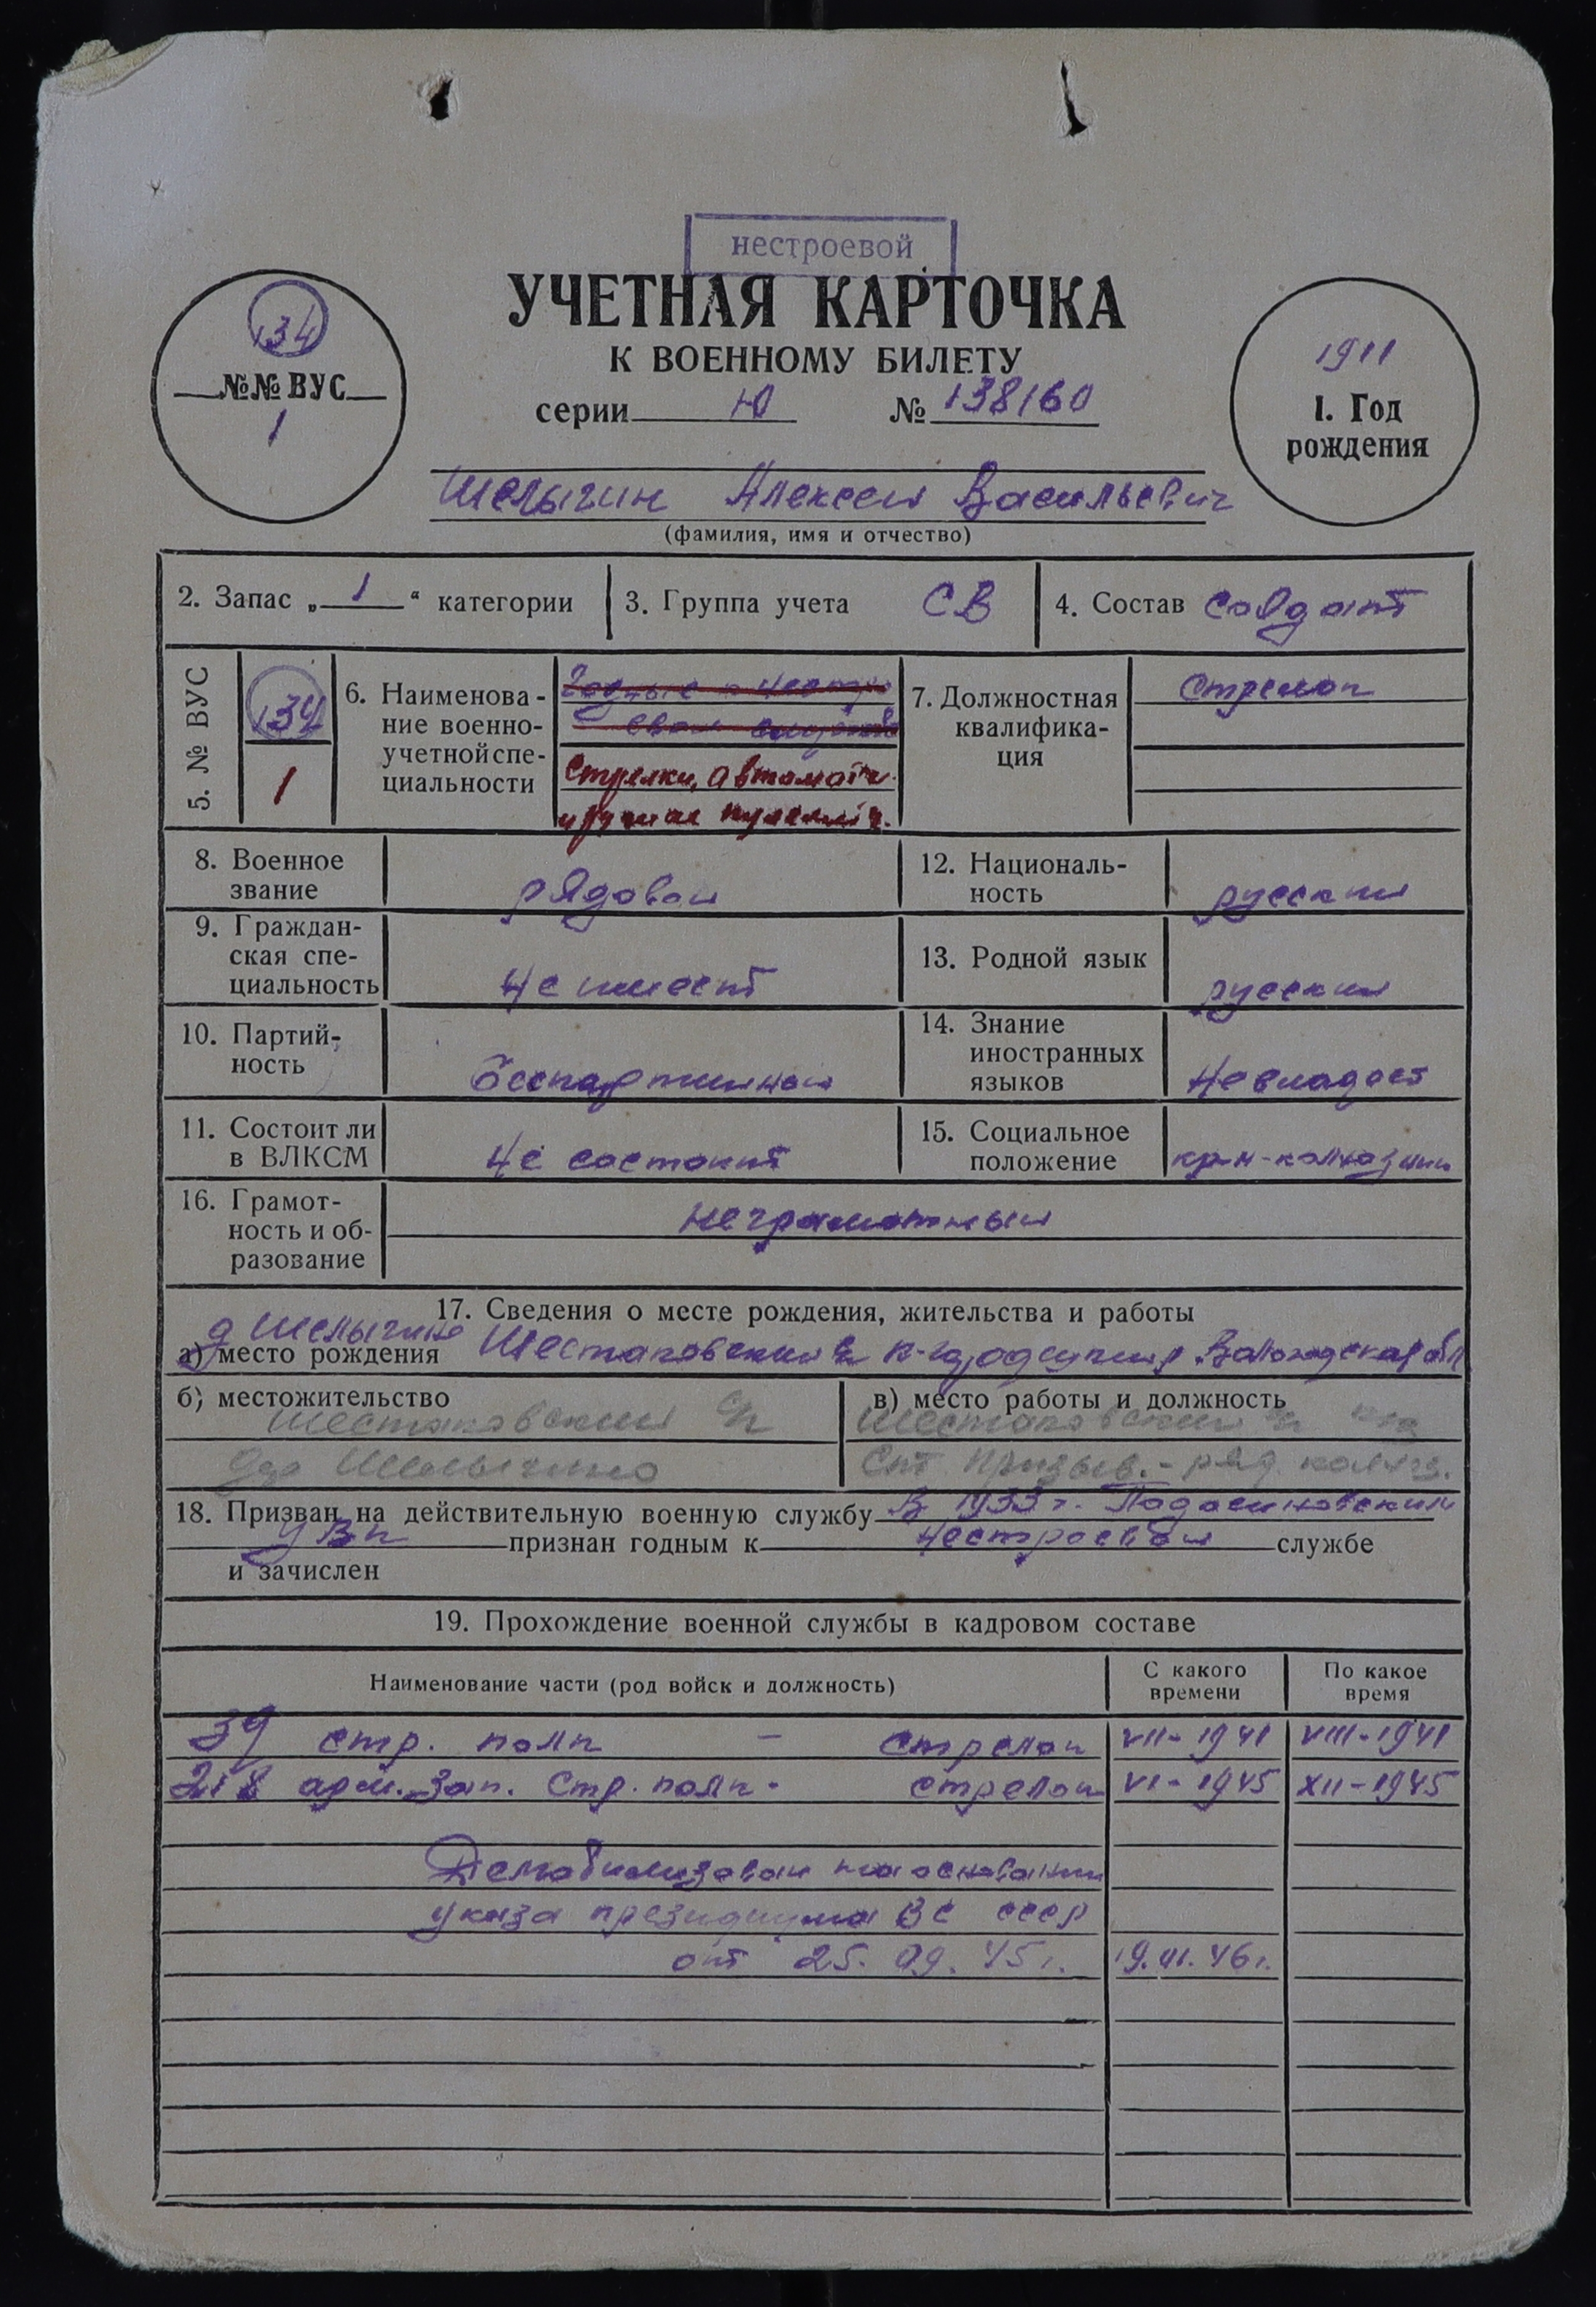 нестроевой
УЧЕТНАЯ КАРТОЧКА
К ВОЕННОМУ БИЛЕТУ
серии Ю № 138160
134
№№ ВУС
1
1911
1. Год
рождения
Шелыгин Алексей Васильевич
(фамилия, имя и отчество)
2. Запас „ 1 “ категории
3. Группа учета СВ
4. Состав солдат
5. № ВУС
134
1
6. Наименова-
ние военно-
учетной спе-
циальности
Годные к нестро
евой службе
Стрелки, автоматч.
и ручные пулеметч.
7. Должностная
квалифика-
ция
Стрелок
8. Военное
звание
рядовой
12. Националь-
ность
русский
9. Граждан-
ская спе-
циальность
Не имеет
13. Родной язык
русский
10. Партий-
ность
беспартийный
14. Знание
иностранных
языков
Не владеет
11. Состоит ли
в ВЛКСМ
Не состоит
15. Социальное
положение
кр-н-колхозник
16. Грамот-
ность и об-
разование
неграмотный
17. Сведения о месте рождения, жительства и работы
д Шелыгино
а) место рождения Шестаковский с/с К-Городецкий Вологодская обл
б) местожительство
Шестаковский с/с
дер Шелыгино
в) место работы и должность
Шестаковский с/с
призыв. - ряд. колхоз.
18. Призван на действительную военную службу В 1933 г. Подосиновским
УВК признан годным к Нестроевой службе
и зачислен
19. Прохождение военной службы в кадровом составе
Наименование части (род войск и должность)
С какого
времени
По какое
время
39 стр. полк — стрелок VII-1941 VIII-1941
218 арм. зап. Стр. полк - стрелок VI-1945 XII-1945
Демобилизован на основании
указа президиума ВС СССР
от 25. 09. 45 г. 19. VI. 46 г.